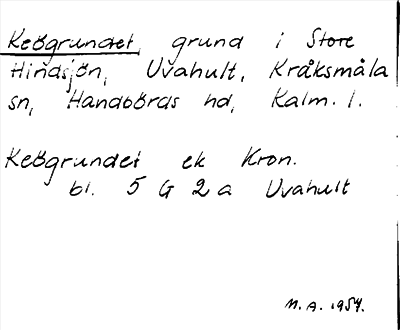 Keögrundet, grund i Store
Hindsjön, Uvahult, Kråksmåla
sn, Handbörds hd, Kalm. l.
Keögrundet ek Kron.
bl. 5 G 2 a Uvahult
M. A. 1957.